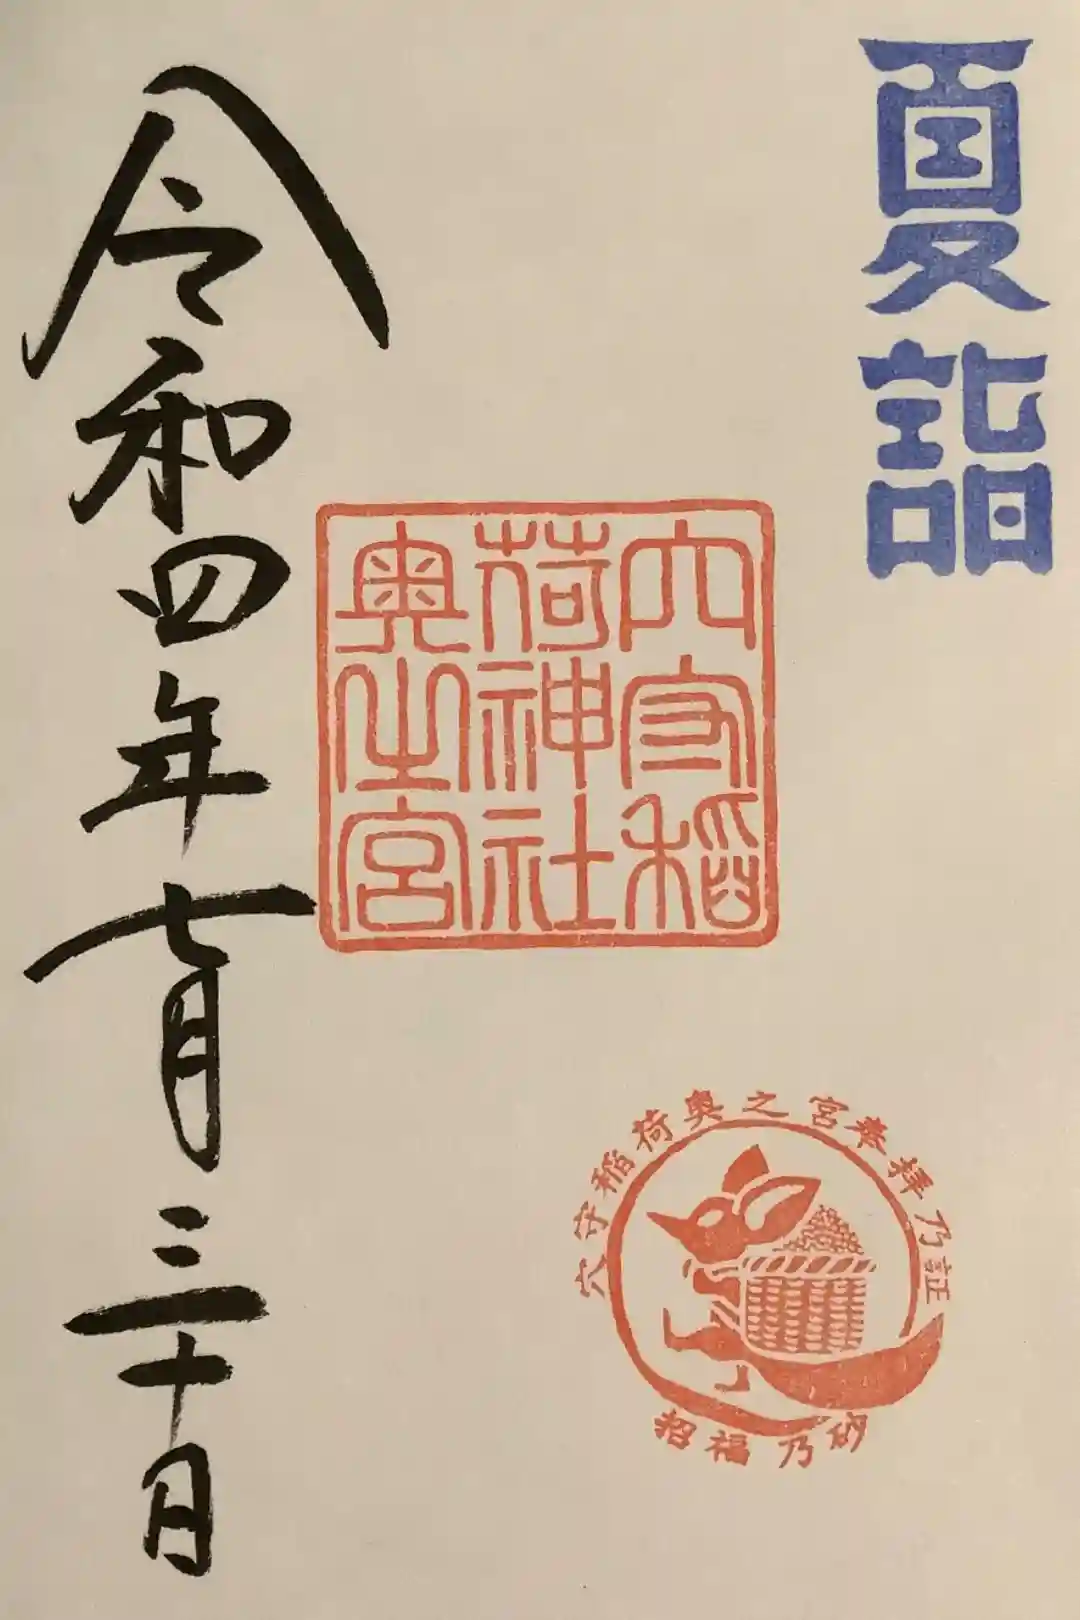 夏詣
穴守稲
荷神社
奥之宮
穴守稲荷奥之宮参拝乃証
招福乃砂
令和四年七月三十日